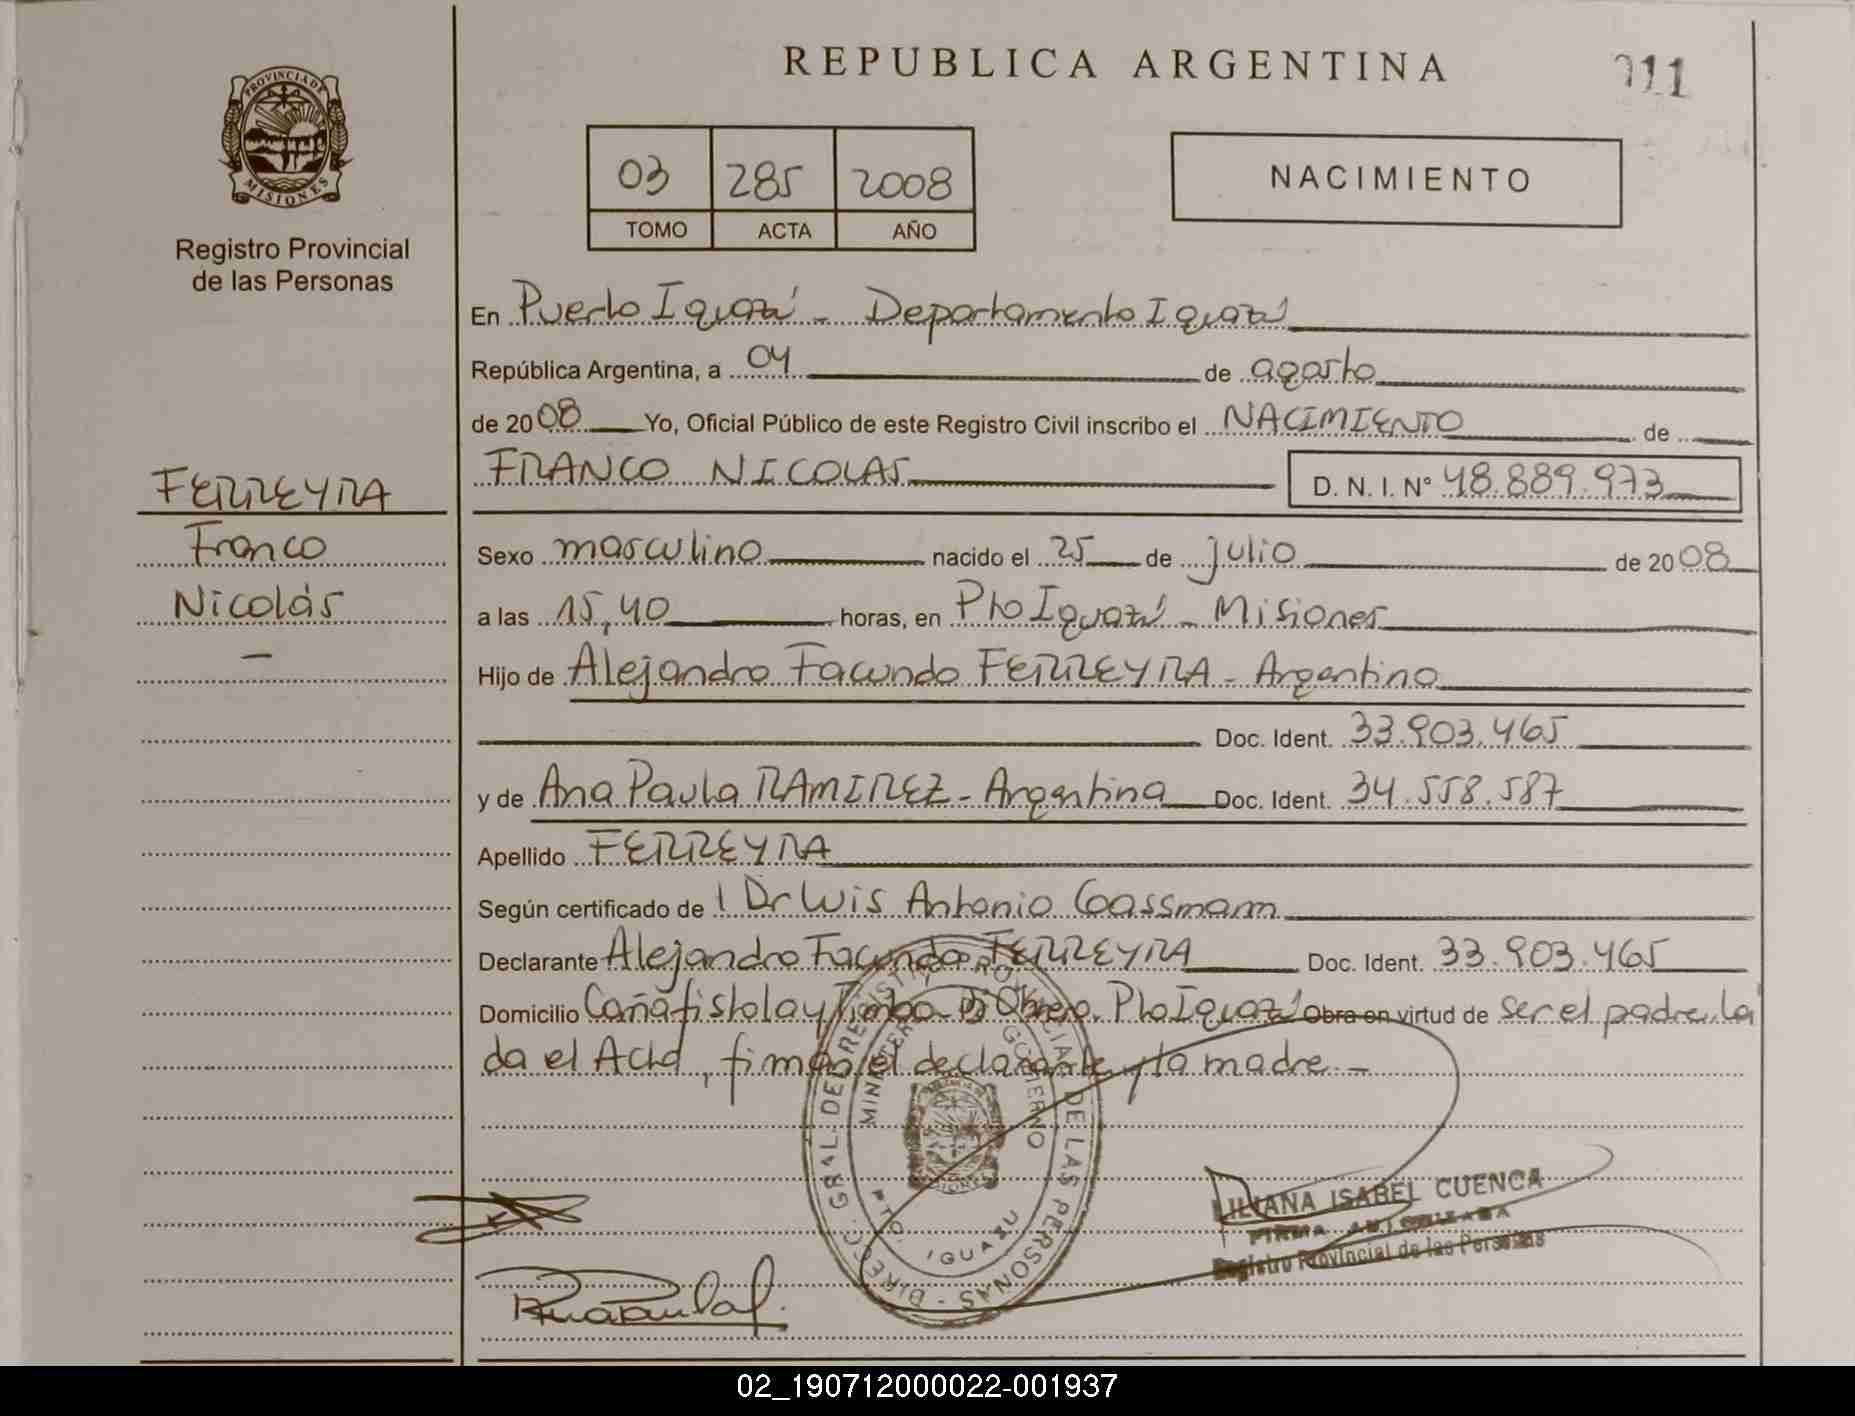 REPUBLICA ARGENTINA
011
PROVINCIA DE MISIONES
Registro Provincial
de las Personas
03 285 2008
TOMO ACTA AÑO
NACIMIENTO
En Puerto Iguazú - Departamento Iguazú
República Argentina, a 04 de agosto
de 2008 Yo, Oficial Público de este Registro Civil inscribo el NACIMIENTO de
FRANCO NICOLAS D. N. I. N° 48.889.973
FERREYRA
Franco
Nicolás
-
Sexo masculino nacido el 25 de julio de 2008
a las 15,40 horas, en Pto Iguazú - Misiones
Hijo de Alejandro Facundo FERREYRA - Argentino
Doc. Ident. 33.903.465
y de Ana Paula RAMIREZ - Argentina Doc. Ident. 34.558.587
Apellido FERREYRA
Según certificado de l Dr Luis Antonio Gassmann
Declarante Alejandro Facundo FERREYRA Doc. Ident. 33.903.465
Domicilio Cañafistola y Timbo Bº Obrero Pto Iguazú Obra en virtud de ser el padre. Lei
da el Acta, firman el declarante y la madre -
DIREC. GRAL. DEL REGISTRO PROVINCIAL DE LAS PERSONAS
MINISTERIO GOBIERNO
PTO. IGUAZU
LILIANA ISABEL CUENCA
FIRMA AUTORIZADA
Registro Provincial de las Personas
02_190712000022-001937